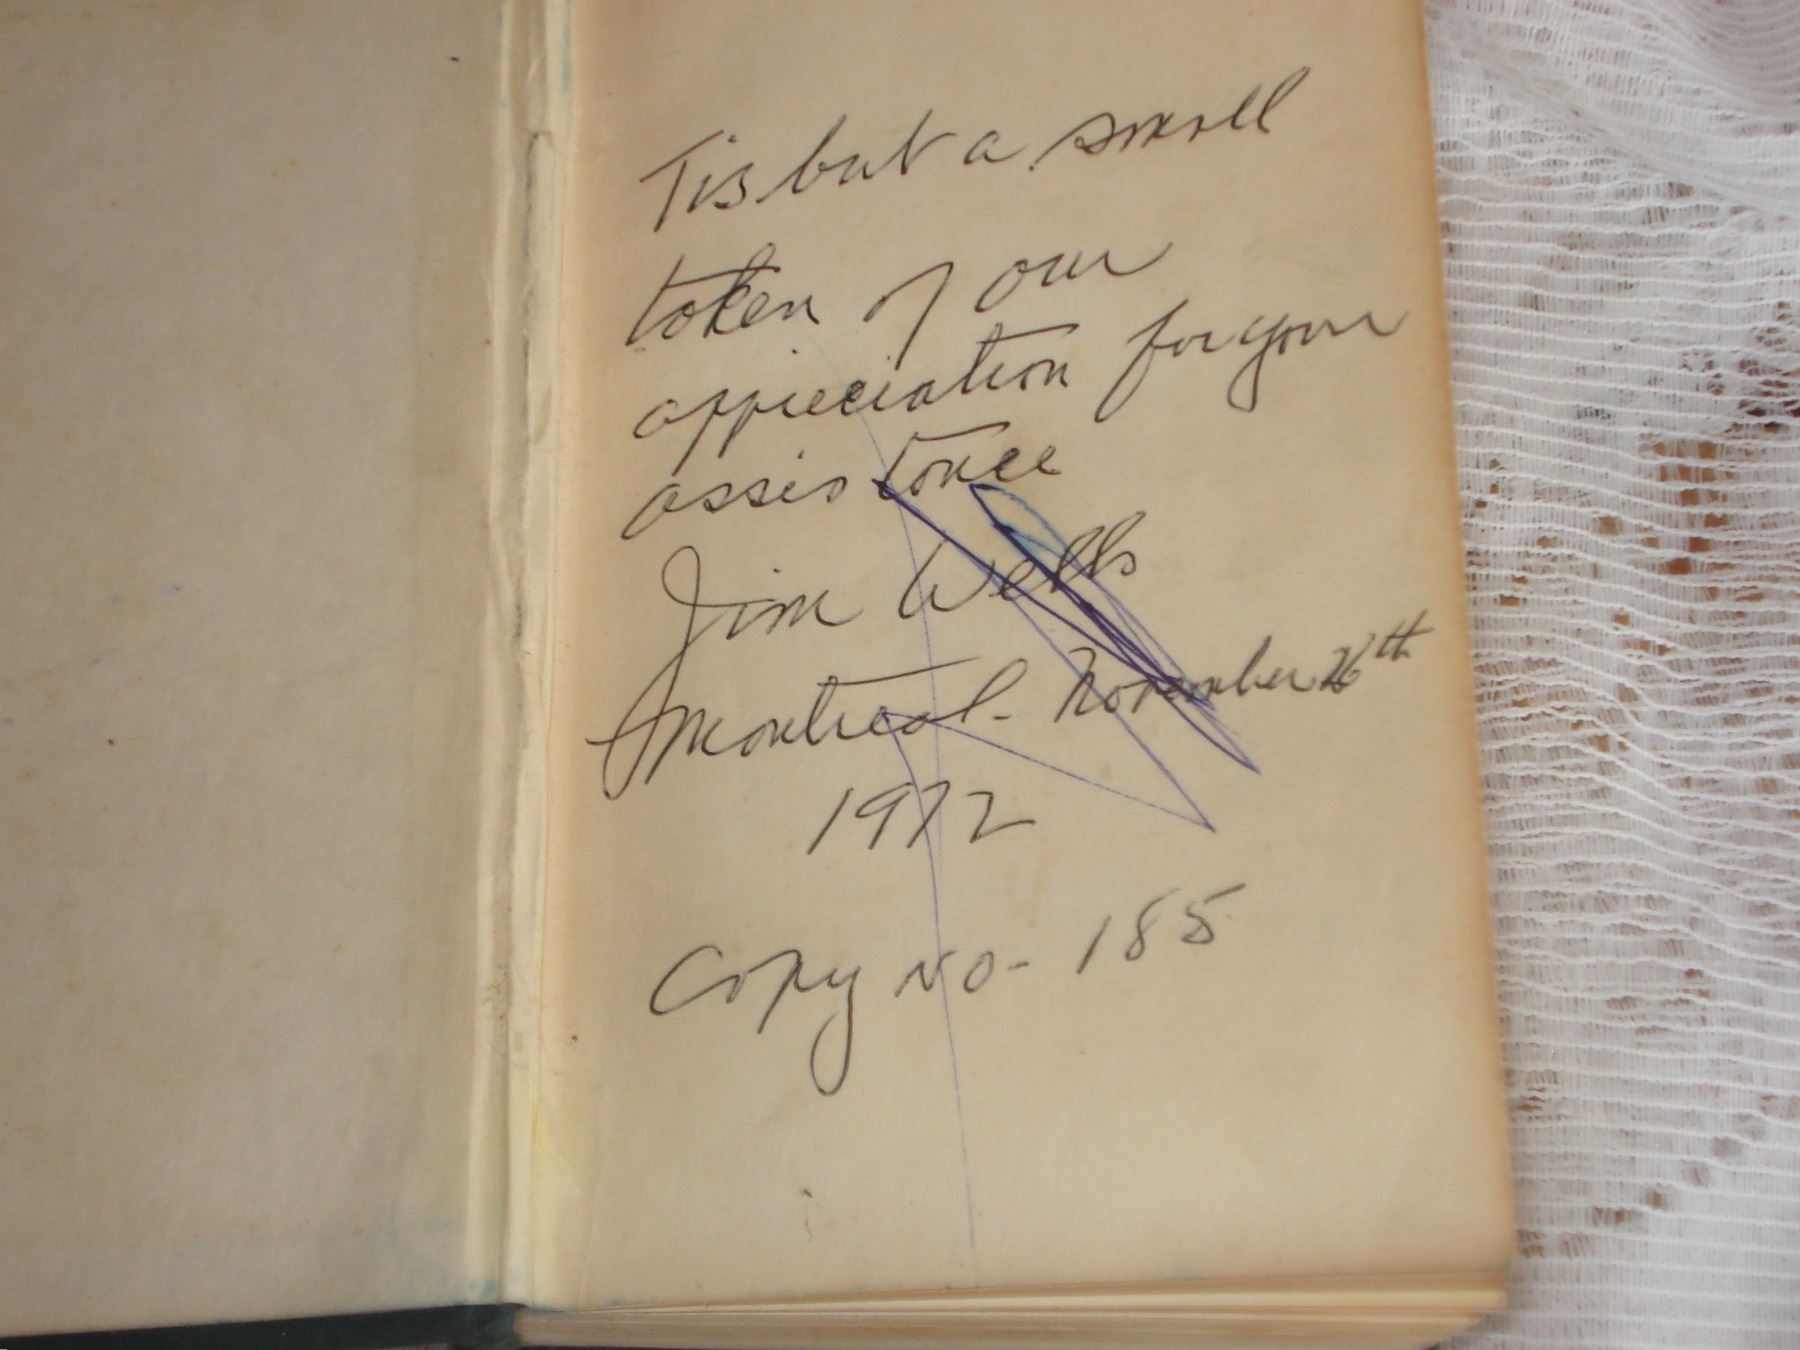 Tis but a small
token of our
appreciation for your
assistance
Jim Wells
Montreal - November 26th
1972
Copy No - 185